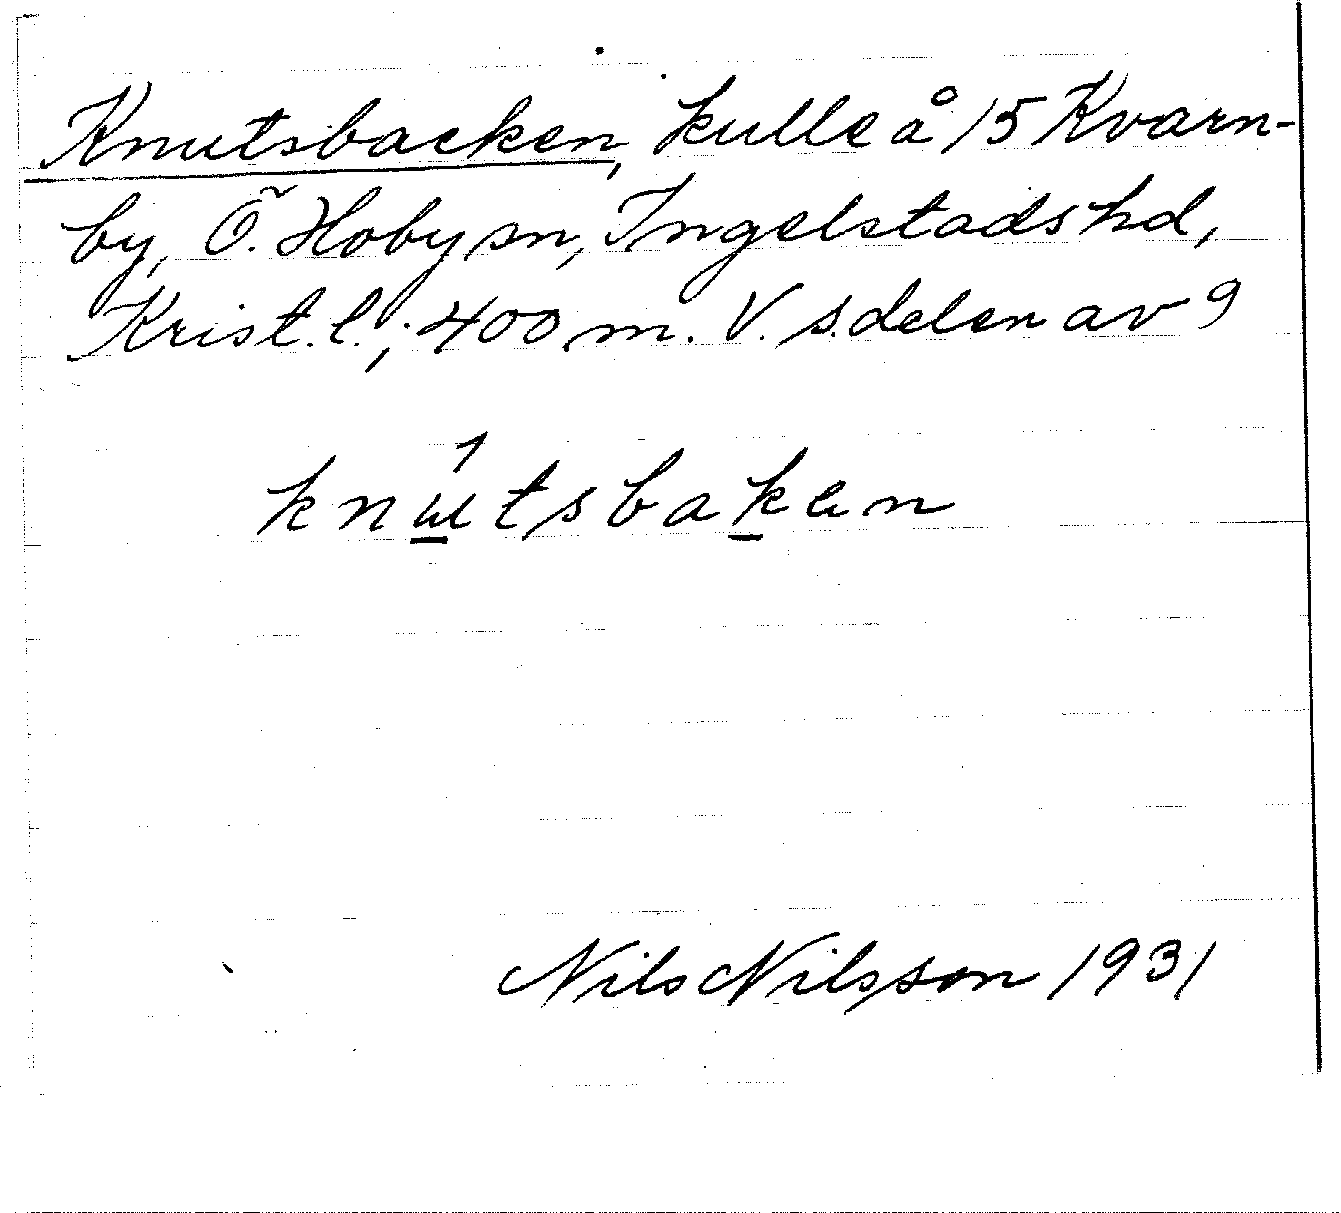 Knutsbacken, kulle å 15 Kvarn-
by, Ö. Hoby sn, Ingelstads hd,
Krist. l.; 400 m. V. s. delen av 9
knɯ́tsbaken
Nils Nilsson 1931